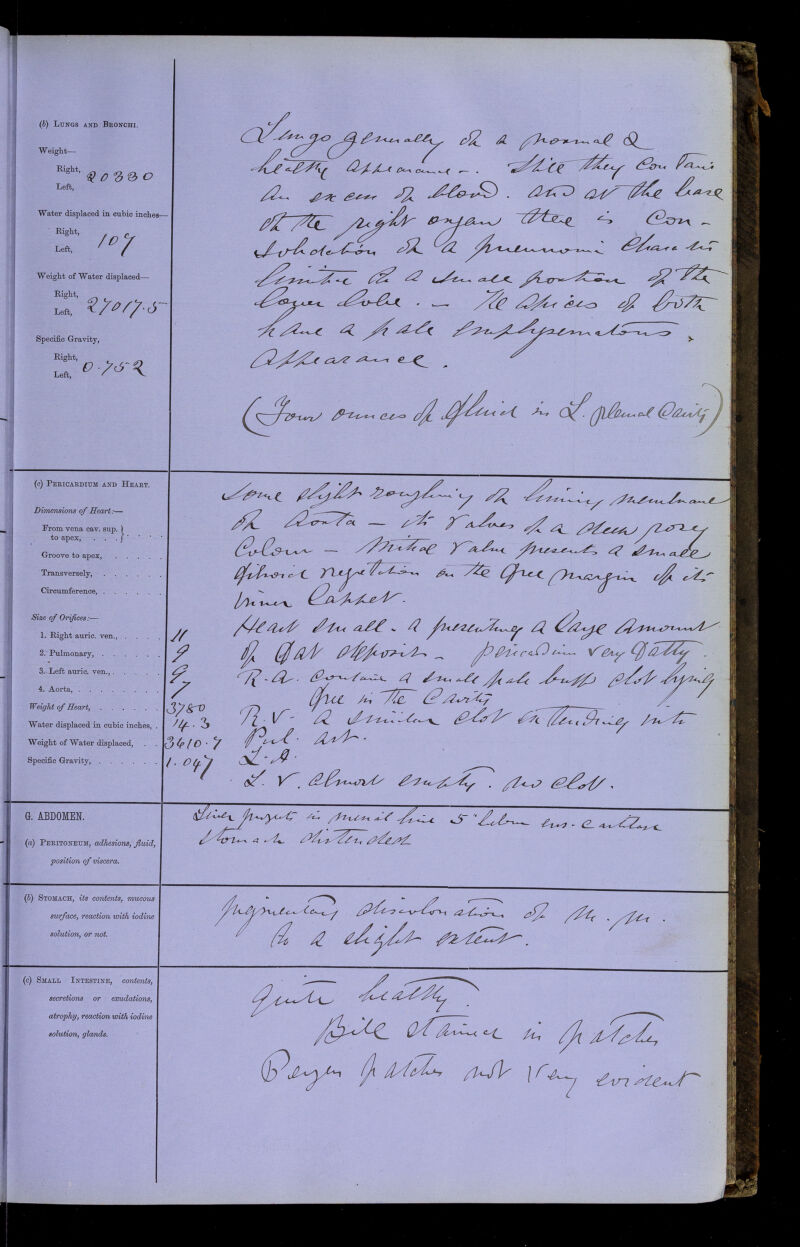 (b) LUNGS AND BRONCHI.
Weight—
Right,
Left,
20330
Water displaced in cubic inches—
Right,
Left,
107
Weight of Water displaced—
Right,
Left,
27017.5
Specific Gravity,
Right,
Left,
0.752
Lungs generally of a normal &
healthy appearance -. Still they contain
an excess of blood. and at the base
of the right organ there is con-
solidation of a pneumonic
limited to a small portion of the
lower lobe. - The apices of both
have a pale emphysematous
appearance.
(Four ounces of fluid in L. pleural Cavity)
(c) PERICARDIUM AND HEART.
Dimensions of Heart:—
From vena cav. sup. to apex,
Groove to apex,
Transversely,
Circumference,
Size of Orifices:—
1. Right auric. ven., 11
2. Pulmonary, 9
3. Left auric. ven., 9
4. Aorta, 7
Weight of Heart, 3780
Water displaced in cubic inches, 14.3
Weight of Water displaced, 3610.7
Specific Gravity, 1.047
Some slight roughning of lining membrane
of Aorta - its valves of a deep rosey
Colour - Mitral valve presents a small
fibroid vegetation on the free margin of its
inner lappet.
Heart small - & presenting a large amount
of fat deposit - pericardium very fatty.
R.A. contain a small pale buff clot lying
free in the Cavity
R.V. a similar clot extending into
Pul. art.
L.A.
L.V. almost empty. no clot.
G. ABDOMEN.
(a) PERITONEUM, adhesions, fluid,
position of viscera.
Liver projects in mesial line 5" below ens. cartilage
Stomach distended
(b) STOMACH, its contents, mucous
surface, reaction with iodine
solution, or not.
pigmentary discoloration of m. m.
to a slight extent.
(c) SMALL INTESTINE, contents,
secretions or exudations,
atrophy, reaction with iodine
solution, glands.
quite healthy.
Bile stained in patches
Peyers patches not very evident